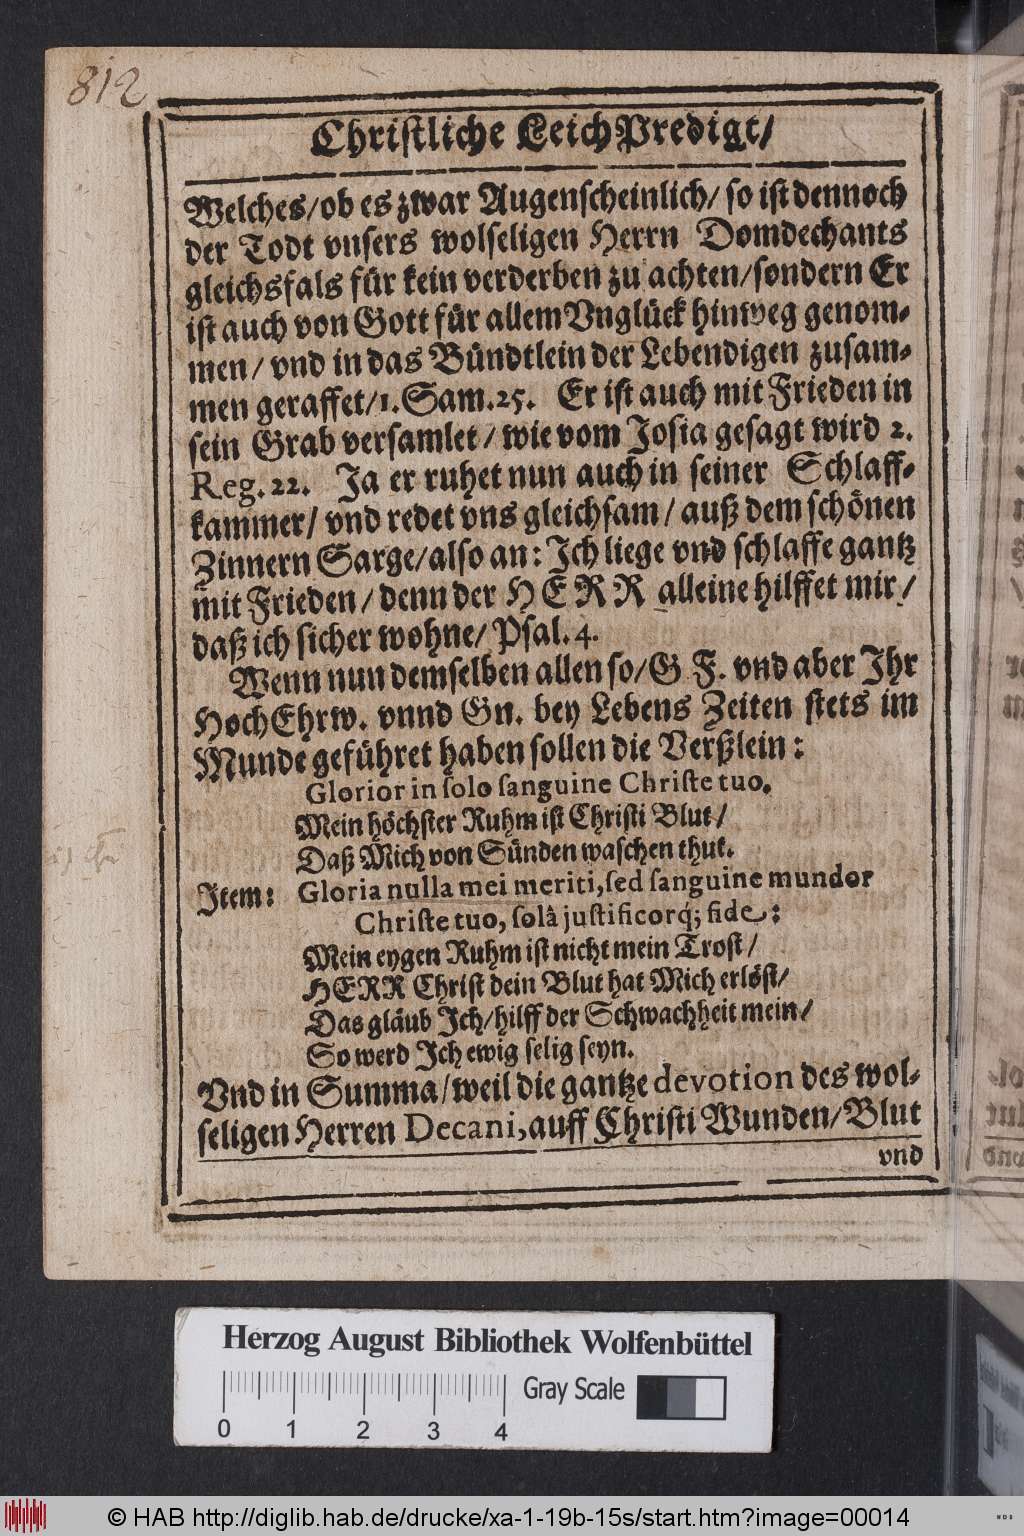 812
Christliche LeichPredigt/
Welches/ob es zwar Augenscheinlich/ so ist dennoch
der Todt vnsers wolseligen Herrn Domdechants
gleichsfals für kein verderben zu achten/sondern Er
ist auch von Gott für allem Vnglück hinweg genom-
men/ vnd in das Bündtlein der Lebendigen zusam-
men geraffet/1. Sam. 25. Er ist auch mit Frieden in
sein Grab versamlet/ wie vom Josia gesagt wird 2.
Reg. 22. Ja er ruhet nun auch in seiner Schlaff-
kammer/ vnd redet vns gleichsam/ auß dem schönen
Zinnern Sarge/also an: Ich liege vnd schlaffe gantz
mit Frieden/ denn der HERR alleine hilffet mir/
daß ich sicher wohne/ Psal. 4.
Wenn nun demselben allen so/G F. vnd aber Ihr
HochEhrw. vnnd Gn. bey Lebens Zeiten stets im
Munde geführet haben sollen die Verßlein:
Glorior in solo sanguine Christe tuo.
Mein höchster Ruhm ist Christi Blut/
Daß Mich von Sünden waschen thut.
Item: Gloria nulla mei meriti, sed sanguine mundor
Christe tuo, solâ justificorq́; fide:
Mein eygen Ruhm ist nicht mein Trost/
HERR Christ dein Blut hat Mich erlöst/
Das gläub Ich/hilff der Schwachheit mein/
So werd Ich ewig selig seyn.
Vnd in Summa/weil die gantze devotion des wol-
seligen Herren Decani, auff Christi Wunden/Blut
vnd
Herzog August Bibliothek Wolfenbüttel
Gray Scale
0 1 2 3 4
© HAB http://diglib.hab.de/drucke/xa-1-19b-15s/start.htm?image=00014